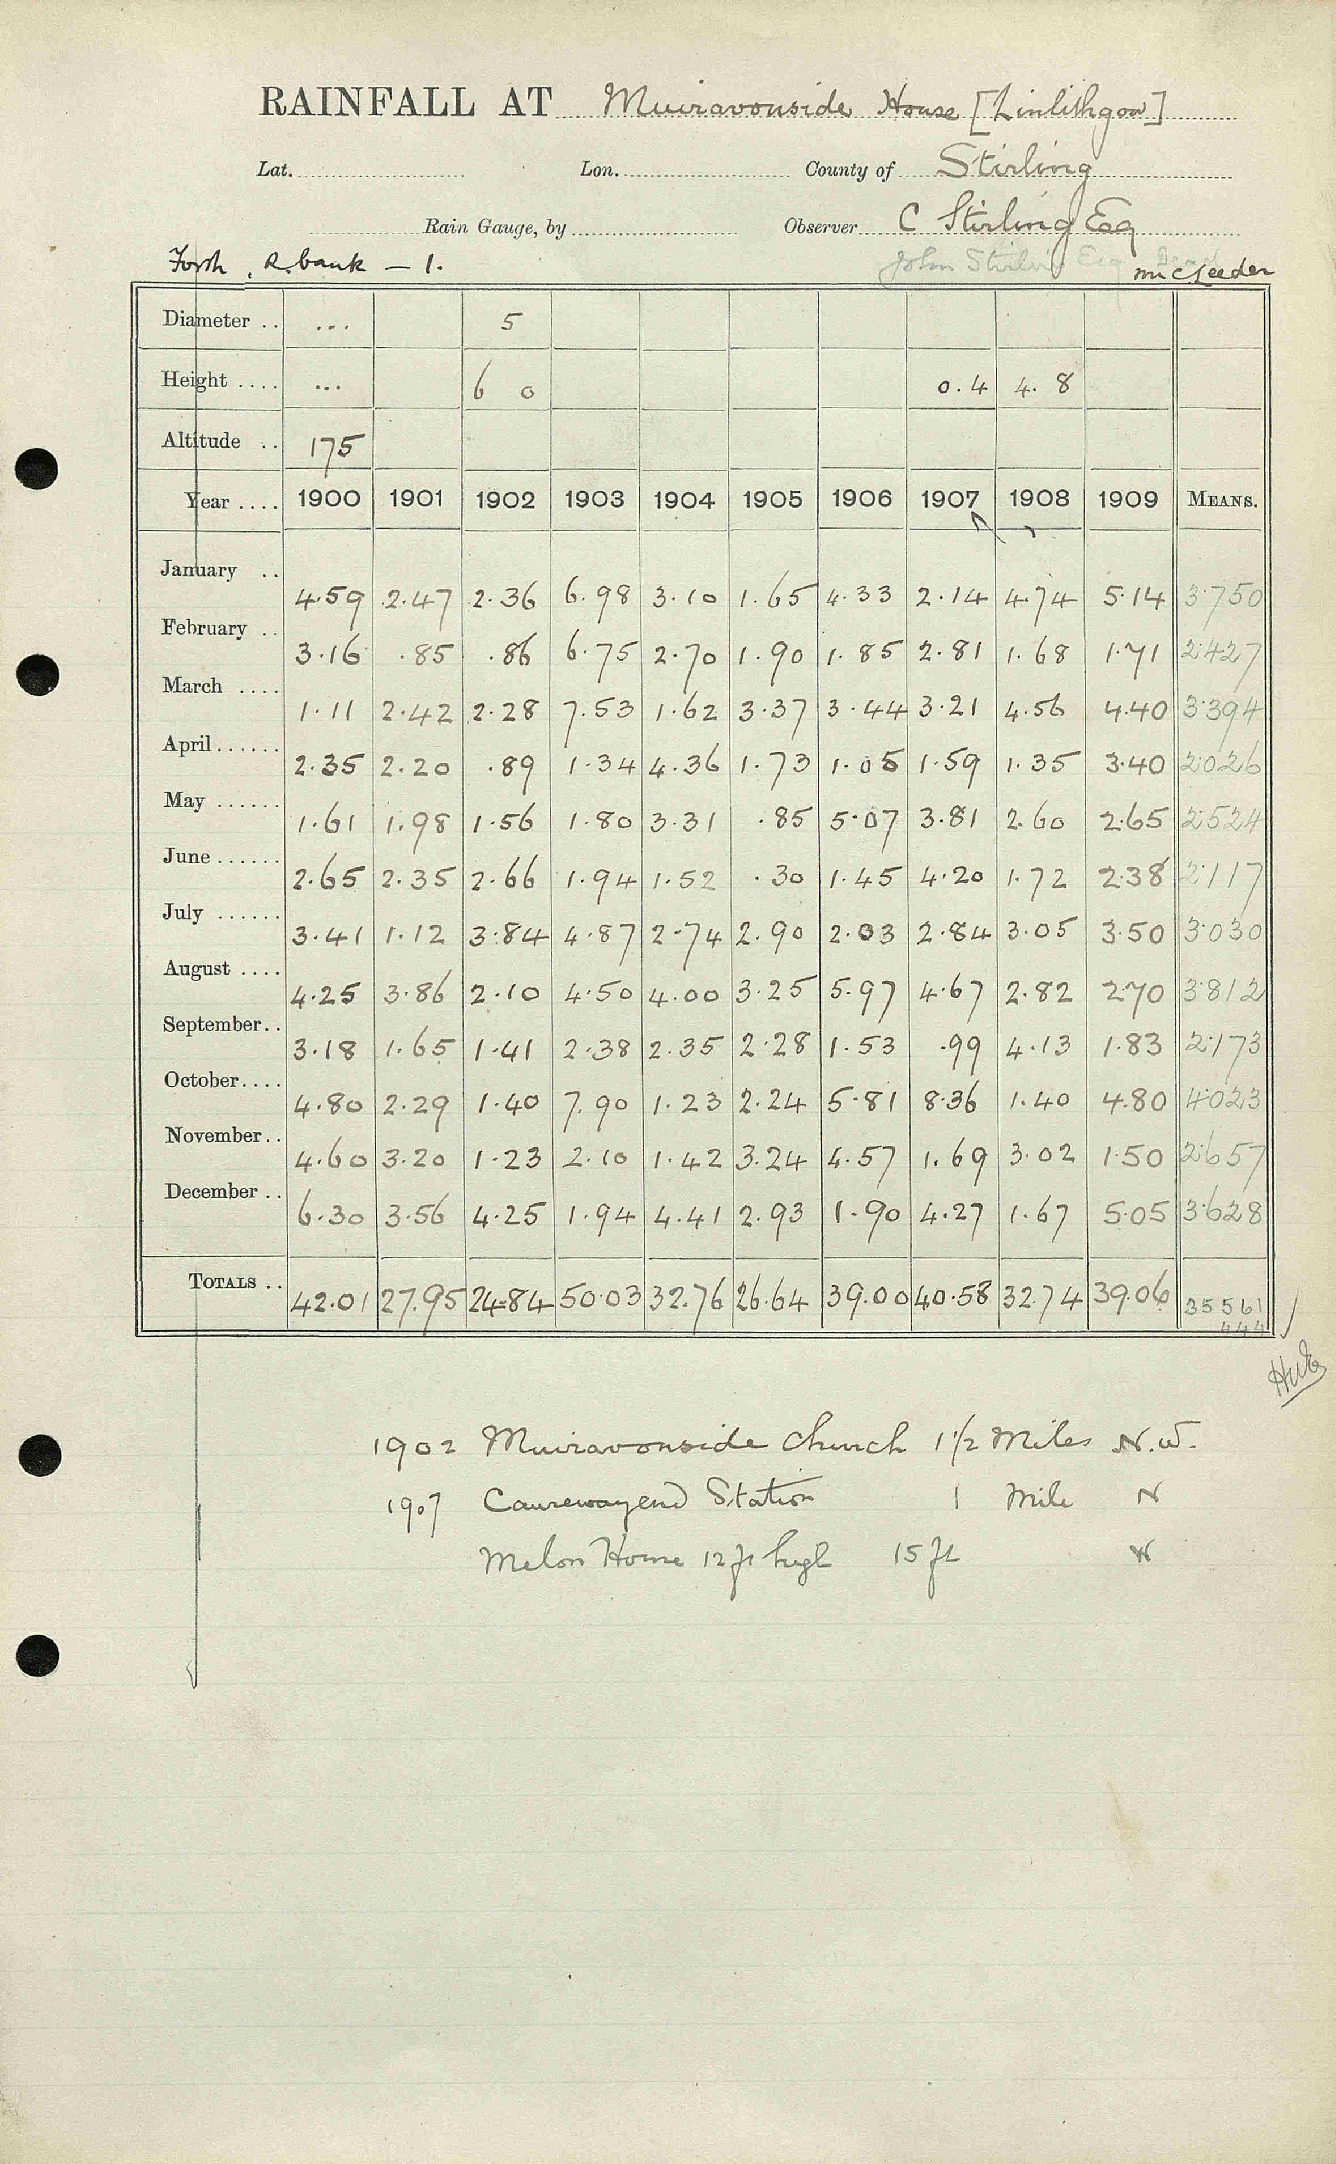 RAINFALL AT Muiravonside House [Linlithgow]
Lat. Lon. County of Stirling
Rain Gauge, by Observer C Stirling Esq
Forth, R. bank - 1. John Stirling Esq Dead
Diameter .. ... 5
Height .... ... 6 0 0.4 4.8
Altitude .. 175
Year .... 1900 1901 1902 1903 1904 1905 1906 1907 1908 1909 MEANS.
January .. 4.59 2.47 2.36 6.98 3.10 1.65 4.33 2.14 4.74 5.14 3.750
February .. 3.16 .85 .86 6.75 2.70 1.90 1.85 2.81 1.68 1.71 2.427
March .... 1.11 2.42 2.28 7.53 1.62 3.37 3.44 3.21 4.56 4.40 3.394
April ...... 2.35 2.20 .89 1.34 4.36 1.73 1.05 1.59 1.35 3.40 2.026
May ...... 1.61 1.98 1.56 1.80 3.31 .85 5.07 3.81 2.60 2.65 2.524
June ...... 2.65 2.35 2.66 1.94 1.52 .30 1.45 4.20 1.72 2.38 2.117
July ...... 3.41 1.12 3.84 4.87 2.74 2.90 2.03 2.84 3.05 3.50 3.030
August .... 4.25 3.86 2.10 4.50 4.00 3.25 5.97 4.67 2.82 2.70 3.812
September .. 3.18 1.65 1.41 2.38 2.35 2.28 1.53 .99 4.13 1.83 2.173
October .... 4.80 2.29 1.40 7.90 1.23 2.24 5.81 8.36 1.40 4.80 4.023
November .. 4.60 3.20 1.23 2.10 1.42 3.24 4.57 1.69 3.02 1.50 2.657
December .. 6.30 3.56 4.25 1.94 4.41 2.93 1.90 4.27 1.67 5.05 3.628
TOTALS .. 42.01 27.95 24.84 50.03 32.76 26.64 39.00 40.58 32.74 39.06 35 561
444
1902 Muiravonside Church 1 1/2 Miles N.W.
1907 Causewayend Station 1 Mile N
Melon House 12 ft high 15 ft